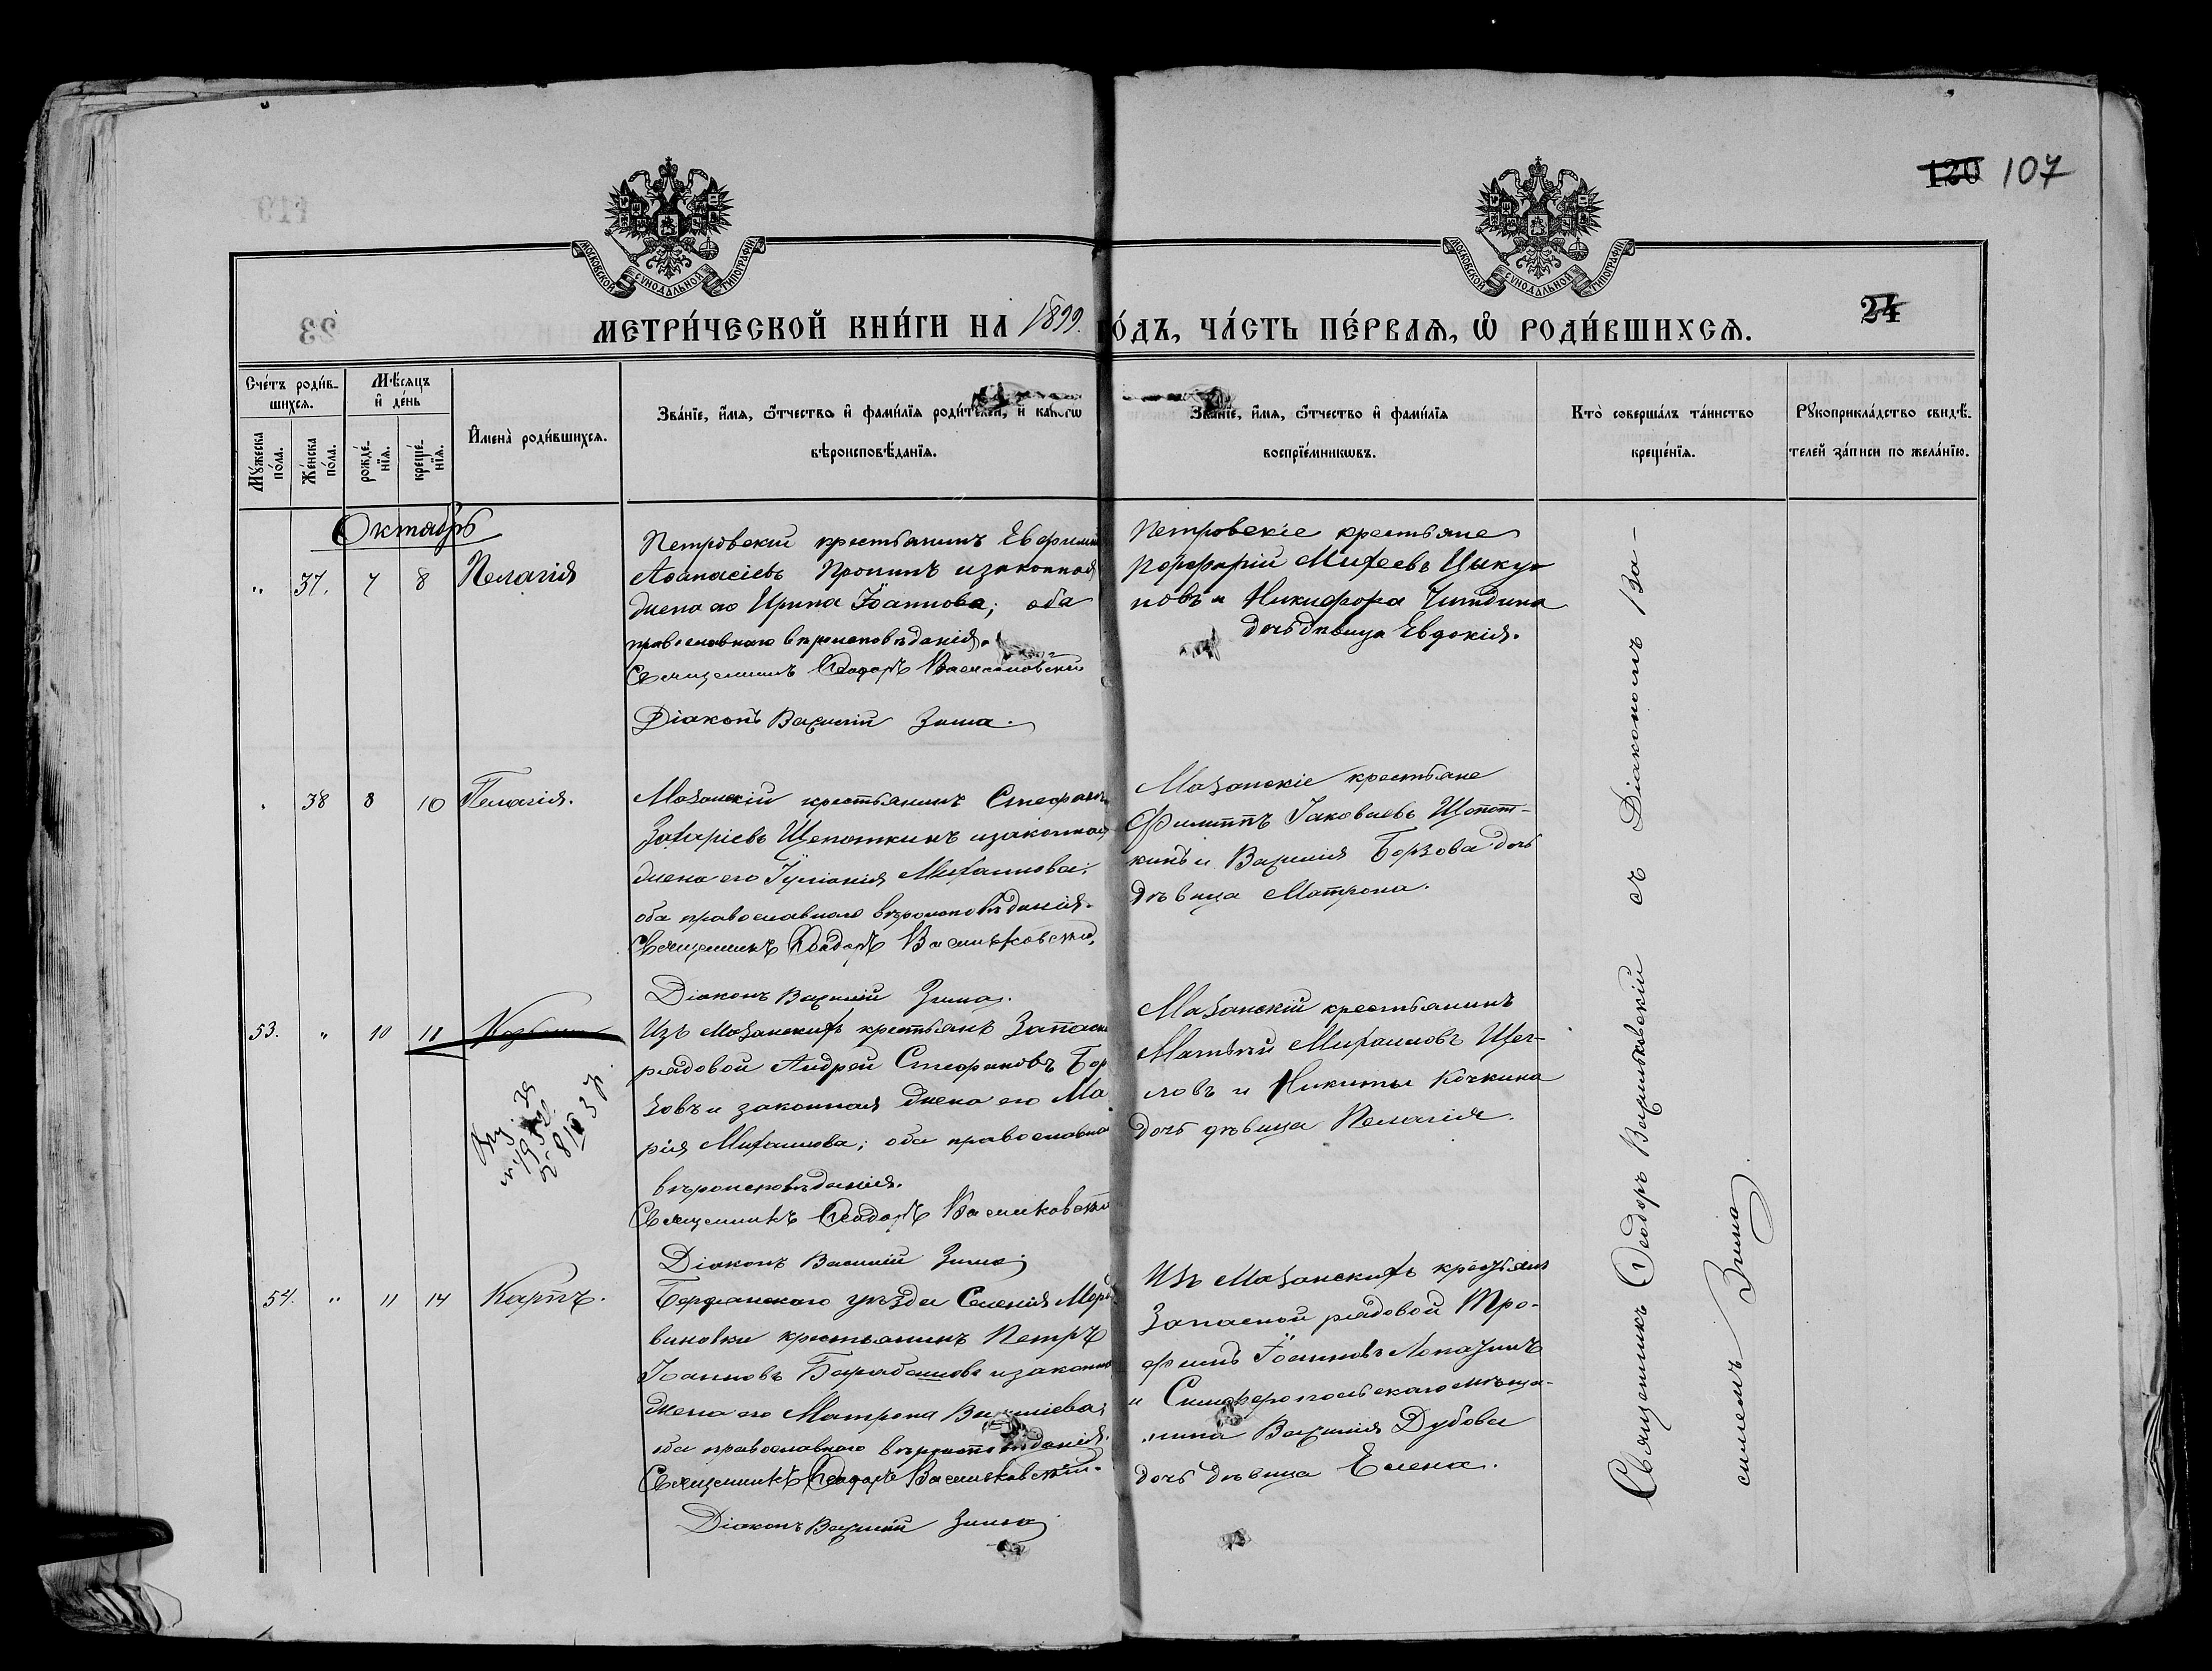 120 107
МОСКОВСКОЙ СУНОДАЛЬНОЙ ТИПОГРАФІИ
МОСКОВСКОЙ СУНОДАЛЬНОЙ ТИПОГРАФІИ
24
МЕТРИ́ЧЕСКОЙ КНИ́ГИ НА 1899 ГО́ДЪ, ЧА́СТЬ ПЕ́РВАѦ, Ѡ҆ РОДИ́ВШИХСѦ.
Сче́тъ роди́в-
шихсѧ.
Мѣ́сѧцъ
и҆ де́нь
Мꙋ́жеска
по́ла.
Же́нска
по́ла.
рожде́-
нїѧ.
креще́-
нїѧ.
И҆мена̀ роди́вшихсѧ.
Зва́нїе, и҆́мѧ, ѻ҆́тчество и҆ фами́лїѧ роди́телей, и҆ како́гѡ
вѣроисповѣ́данїѧ.
Зва́нїе, и҆́мѧ, ѻ҆́тчество и҆ фами́лїѧ
воспрїе́мникѡвъ.
Кто̀ соверша́лъ та́инство
креще́нїѧ.
Рꙋкоприкла́дство свидѣ́-
телей за́писи по жела́нїю.
Октябрь
" 37. 7 8 Пелагія
Петровскій крестьянинъ Евфимій
Аѳанасіевъ Пронинъ и законная
жена его Ирина Іоаннова; оба
православнаго вѣроисповѣданія.
Священникъ Ѳеодоръ Васильковскій
Діаконъ Василій Зима.
Петровскіе крестьяне
Порфирій Михеевъ Цыку-
новъ и Никифора
дочь дѣвица Евдокія.
" 38 8 10 Пелагія.
Мазанскій крестьянинъ Стефанъ
Захаріевъ Щепоткинъ и законная
жена его Іуліанія Михаилова;
оба православнаго вѣроисповѣданія.
Священникъ Ѳеодоръ Васильковскій,
Діаконъ Василій Зима.
Мазанскіе крестьяне
Филиппъ Іаковлевъ Щепот-
кинъ и Василія Борзова дочь
дѣвица Матрона.
53. " 10 11
Изъ Мазанскихъ крестьянъ Запасный
рядовой Андрей Стефановъ Бор
зовъ и законная жена его Ма
рія Михаилова; оба православнаго
вѣроисповѣданія.
Священникъ Ѳеодоръ Васильковскій
Діаконъ Василій Зима
Мазанскій крестьянинъ
Матѳій Михаиловъ Щег-
ловъ и Никиты Кочкина
дочь дѣвица Пелагія.
54. " 11 14 Карпъ.
Бердянскаго уѣзда Селенія Морд
виновки крестьянинъ Петръ
Іоанновъ Барабашовъ и законная
жена его Матрона Василіева;
оба православнаго вѣроисповѣданія.
Священникъ Ѳеодоръ Васильковскій.
Діаконъ Василій Зима
Изъ Мазанскихъ крестьянъ
Запасной рядовой Тро-
фимъ Іоанновъ Лопазинъ
и Симферопольскаго мѣща-
нина Василія Дубова
дочь дѣвица Елена.
Священникъ Ѳеодоръ Васильковскій съ Діакономъ Ва-
силіемъ Зима.